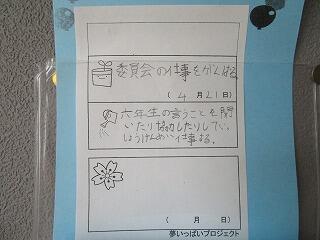 委員会の仕事をがんばる
(4月21日)
六年生の言うことを聞
いたり協力したりして、
しょうけんめい仕事する。
(月日)
夢いっぱいプロジェクト